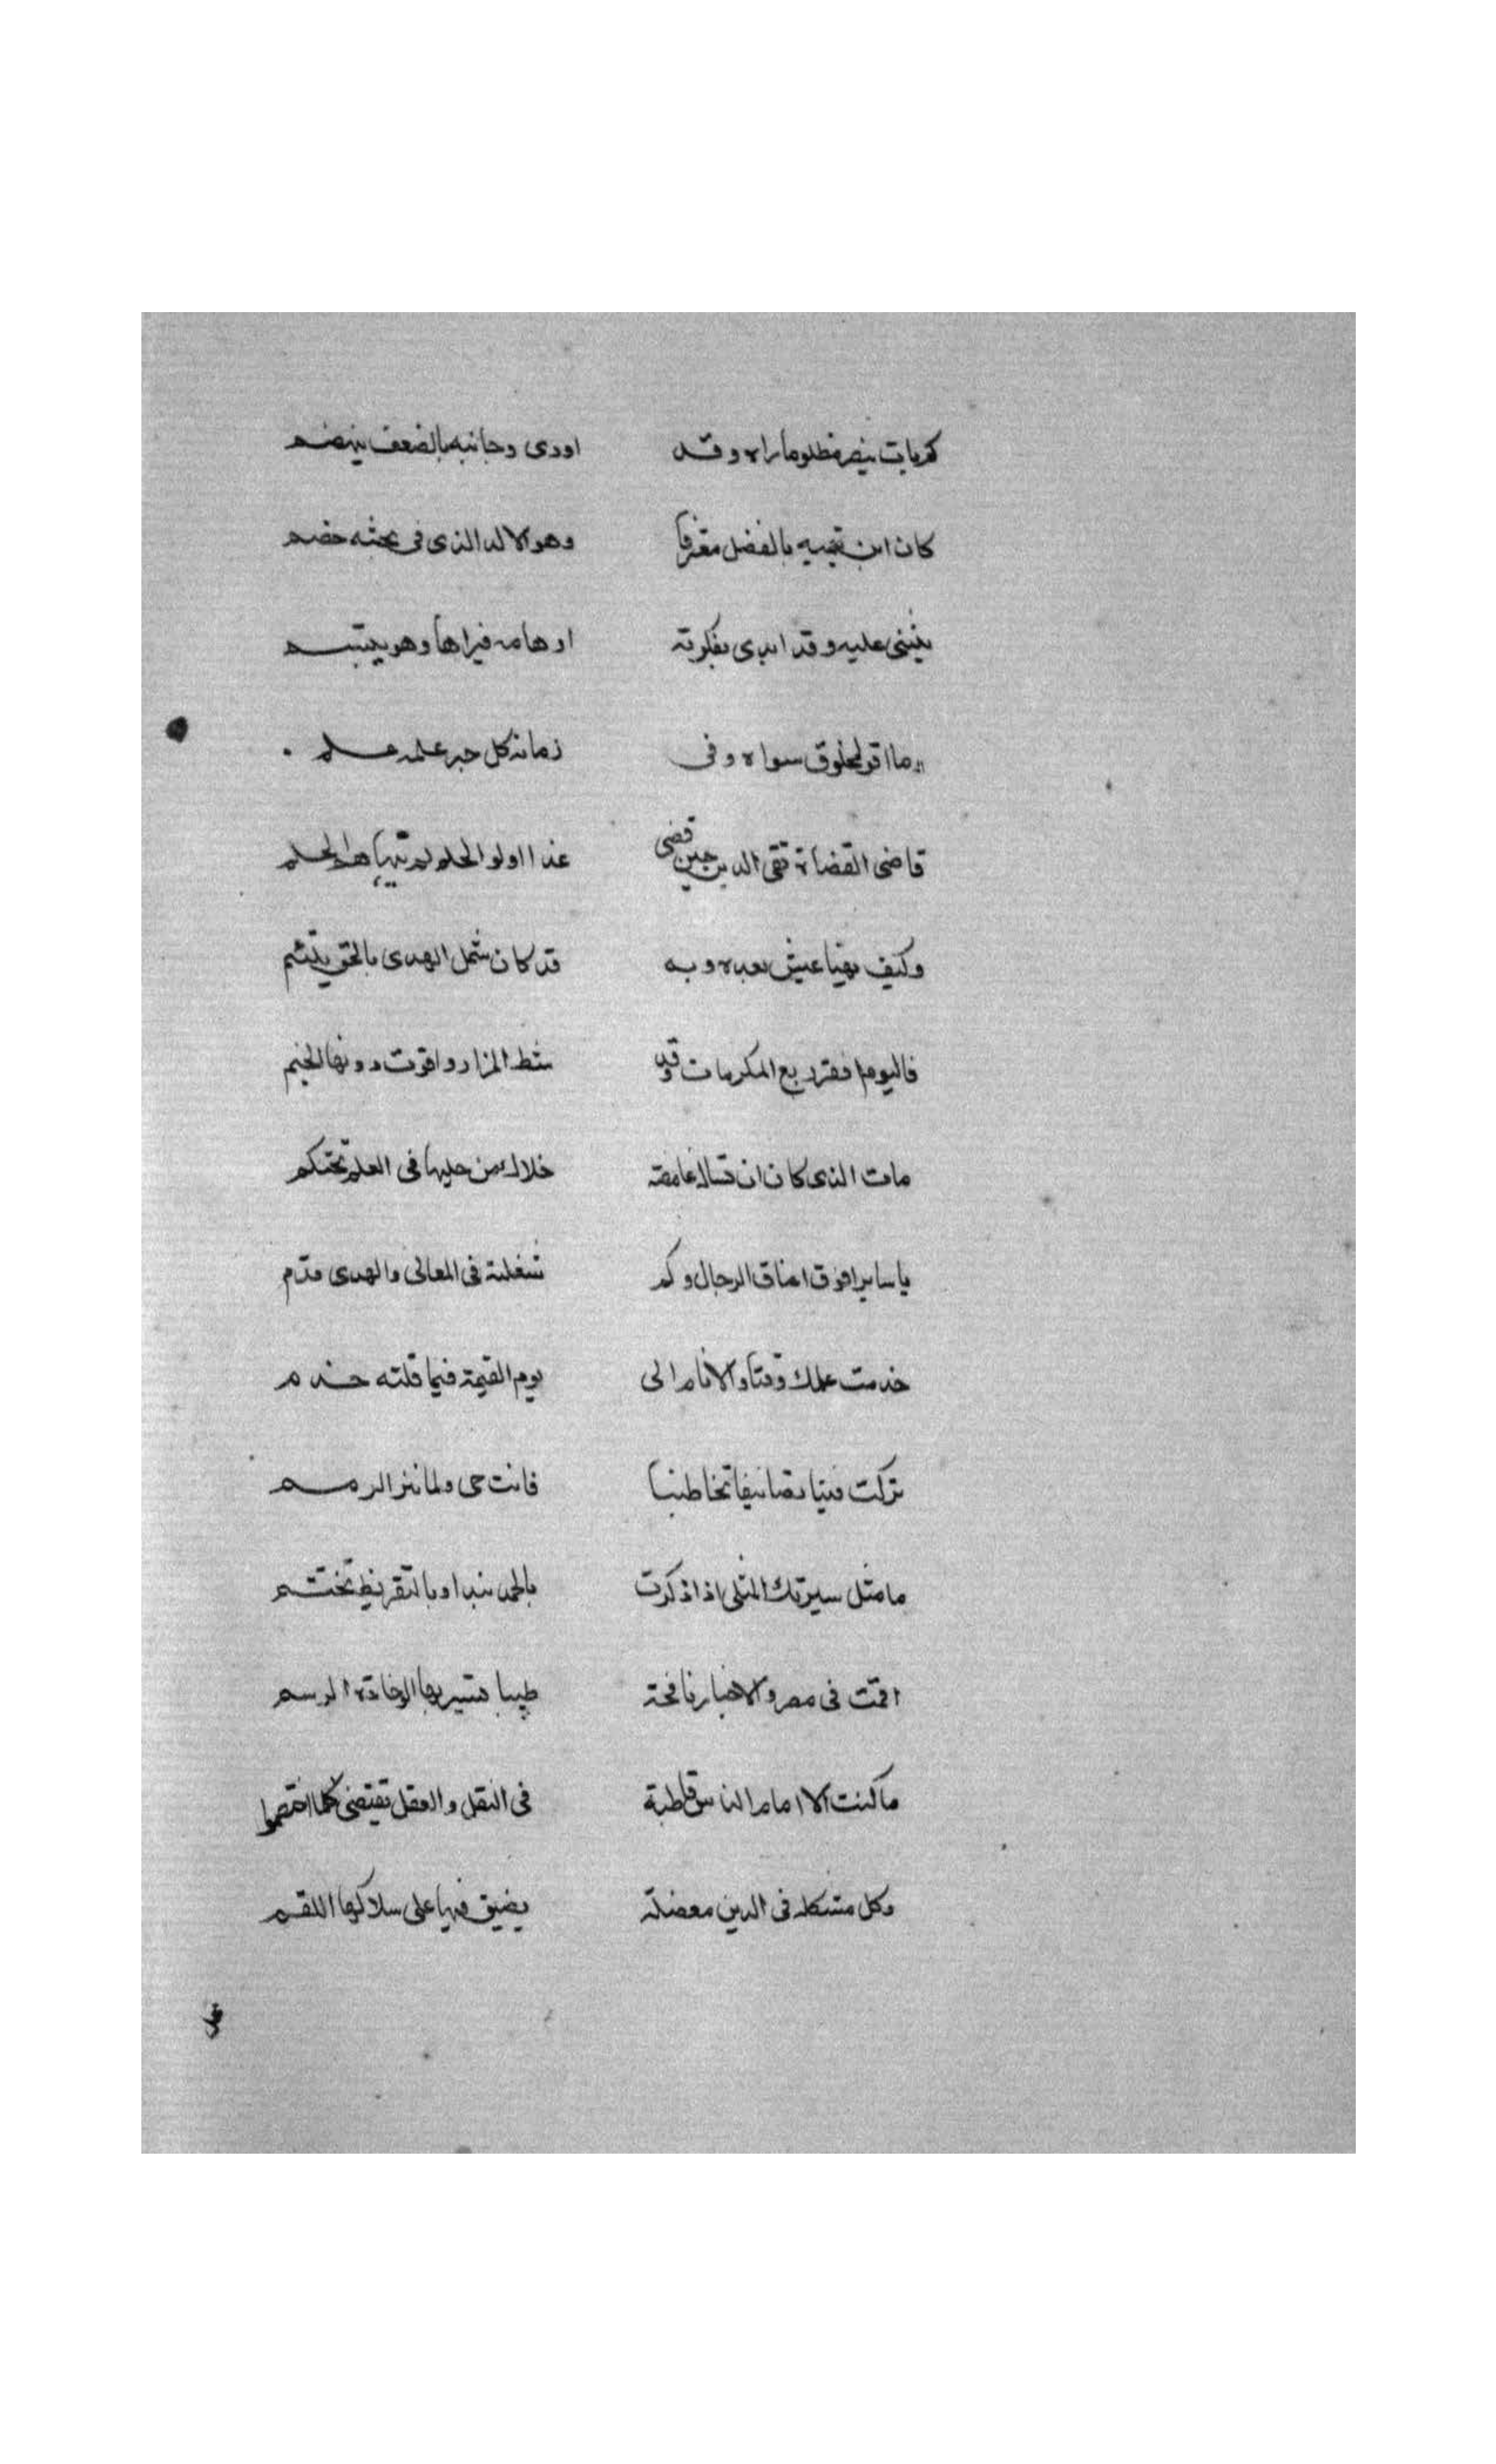 كم بات ينصر مظلوما راه وقد اودى وجانبه بالضعف ينهضم
كان ابن تيميه بالفضل معترفا وهو الالد الذى فى بحثه خصم
يثنى عليه وقد ابدى بفكرته اوهامه فيراها وهو يبتسم
وما اقر لمخلوق سواه وفى زمانه كل حبر علمه علم
قاضى القضاة تقى الدين حين قضى غدا اولو الحلم لم يتهياها لحلم
وكيف يهنا عيش بعده وبه قد كان شمل الهدى بالحق يلتئم
فاليوم اقفر ربع المكرمات وقد شط المزار واقوت دونها الخيم
مات الذى كان ان تسال غامضة خلالك من حليها فى العلم تحتكم
يا سايرا فوق اعناق الرجال وكم تسعى له فى المعالى والهدى قدم
خدمت علمك وقتا والانام الى يوم القيمة فيما قلته خدم
تركت فينا تصانيفا تخاطبنا فانت حى ولما تنز الرمم
ما مثل سيرتك المثلى اذا ذكرت بالحمد تبدا وبالتقريظ تختتم
اقمت فى مصر والاخبار نافحة طيبا يسير بها الوخادة الرسم
ما كنت الا امام الناس قاطبة فى النقل والعقل تقتضى كلما اختصموا
وكل مشكلة فى الدين معضلة يضيق فيها على سلاكها اللقم